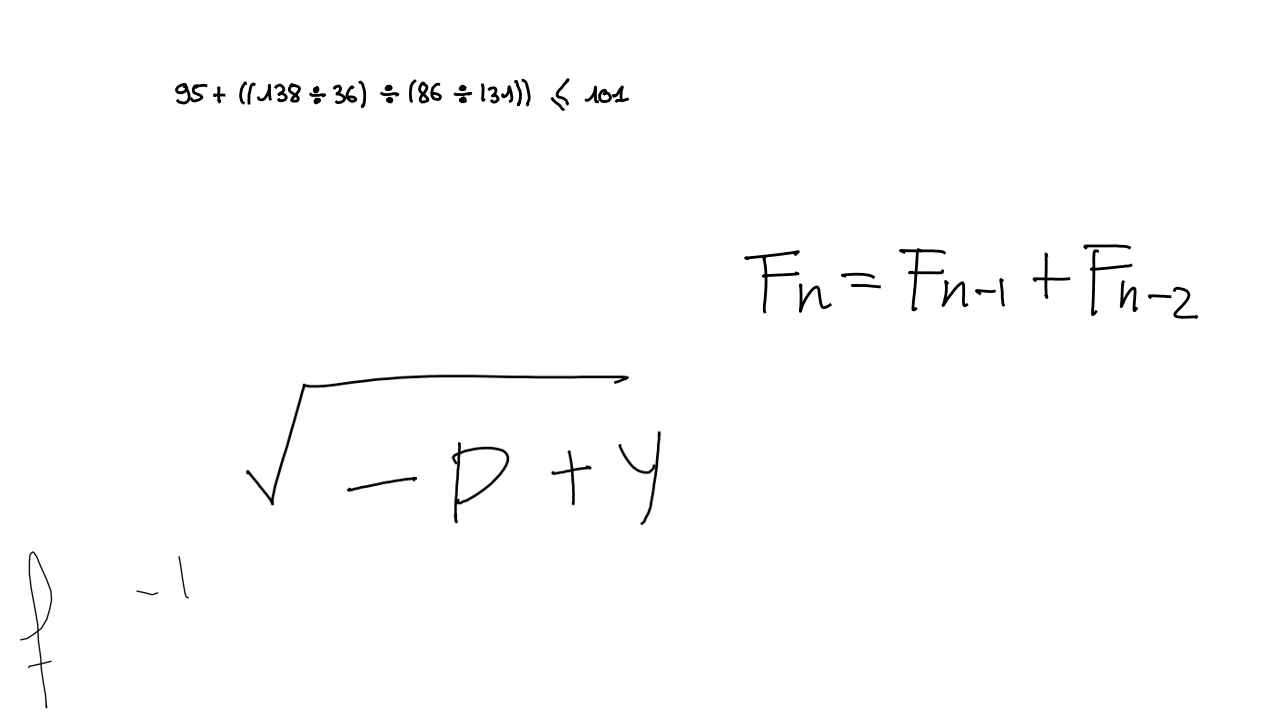 95 + ((138 ÷ 36) ÷ (86 ÷ 131)) ≤ 101
Fₙ = Fₙ₋₁ + Fₙ₋₂
√(-p + y)
f⁻¹